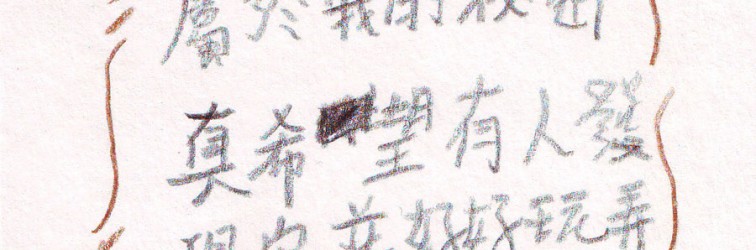 屬於我的秘密
真希望有人發
現它並好好玩弄